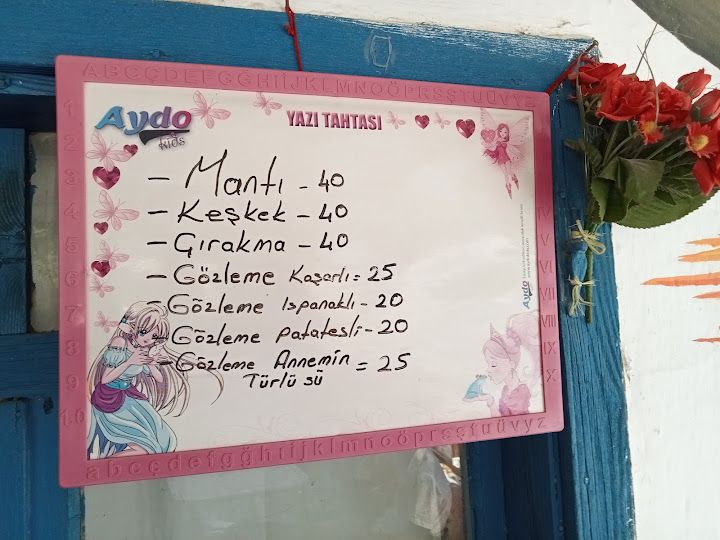 A B C Ç D E F G Ğ H I İ J K L M N O Ö P R S Ş T U Ü V Y Z
Aydo
kids
YAZI TAHTASI
- Mantı - 40
- Keşkek - 40
- Çırakma - 40
- Gözleme Kaşarlı = 25
- Gözleme Ispanaklı - 20
- Gözleme patatesli - 20
- Gözleme Annemin = 25
Türlü sü
1
2
3
4
5
6
7
8
9
10
IV
V
VI
VII
VIII
IX
X
Aydo
a b c ç d e f g ğ h ı i j k l m n o ö p r s ş t u ü v y z